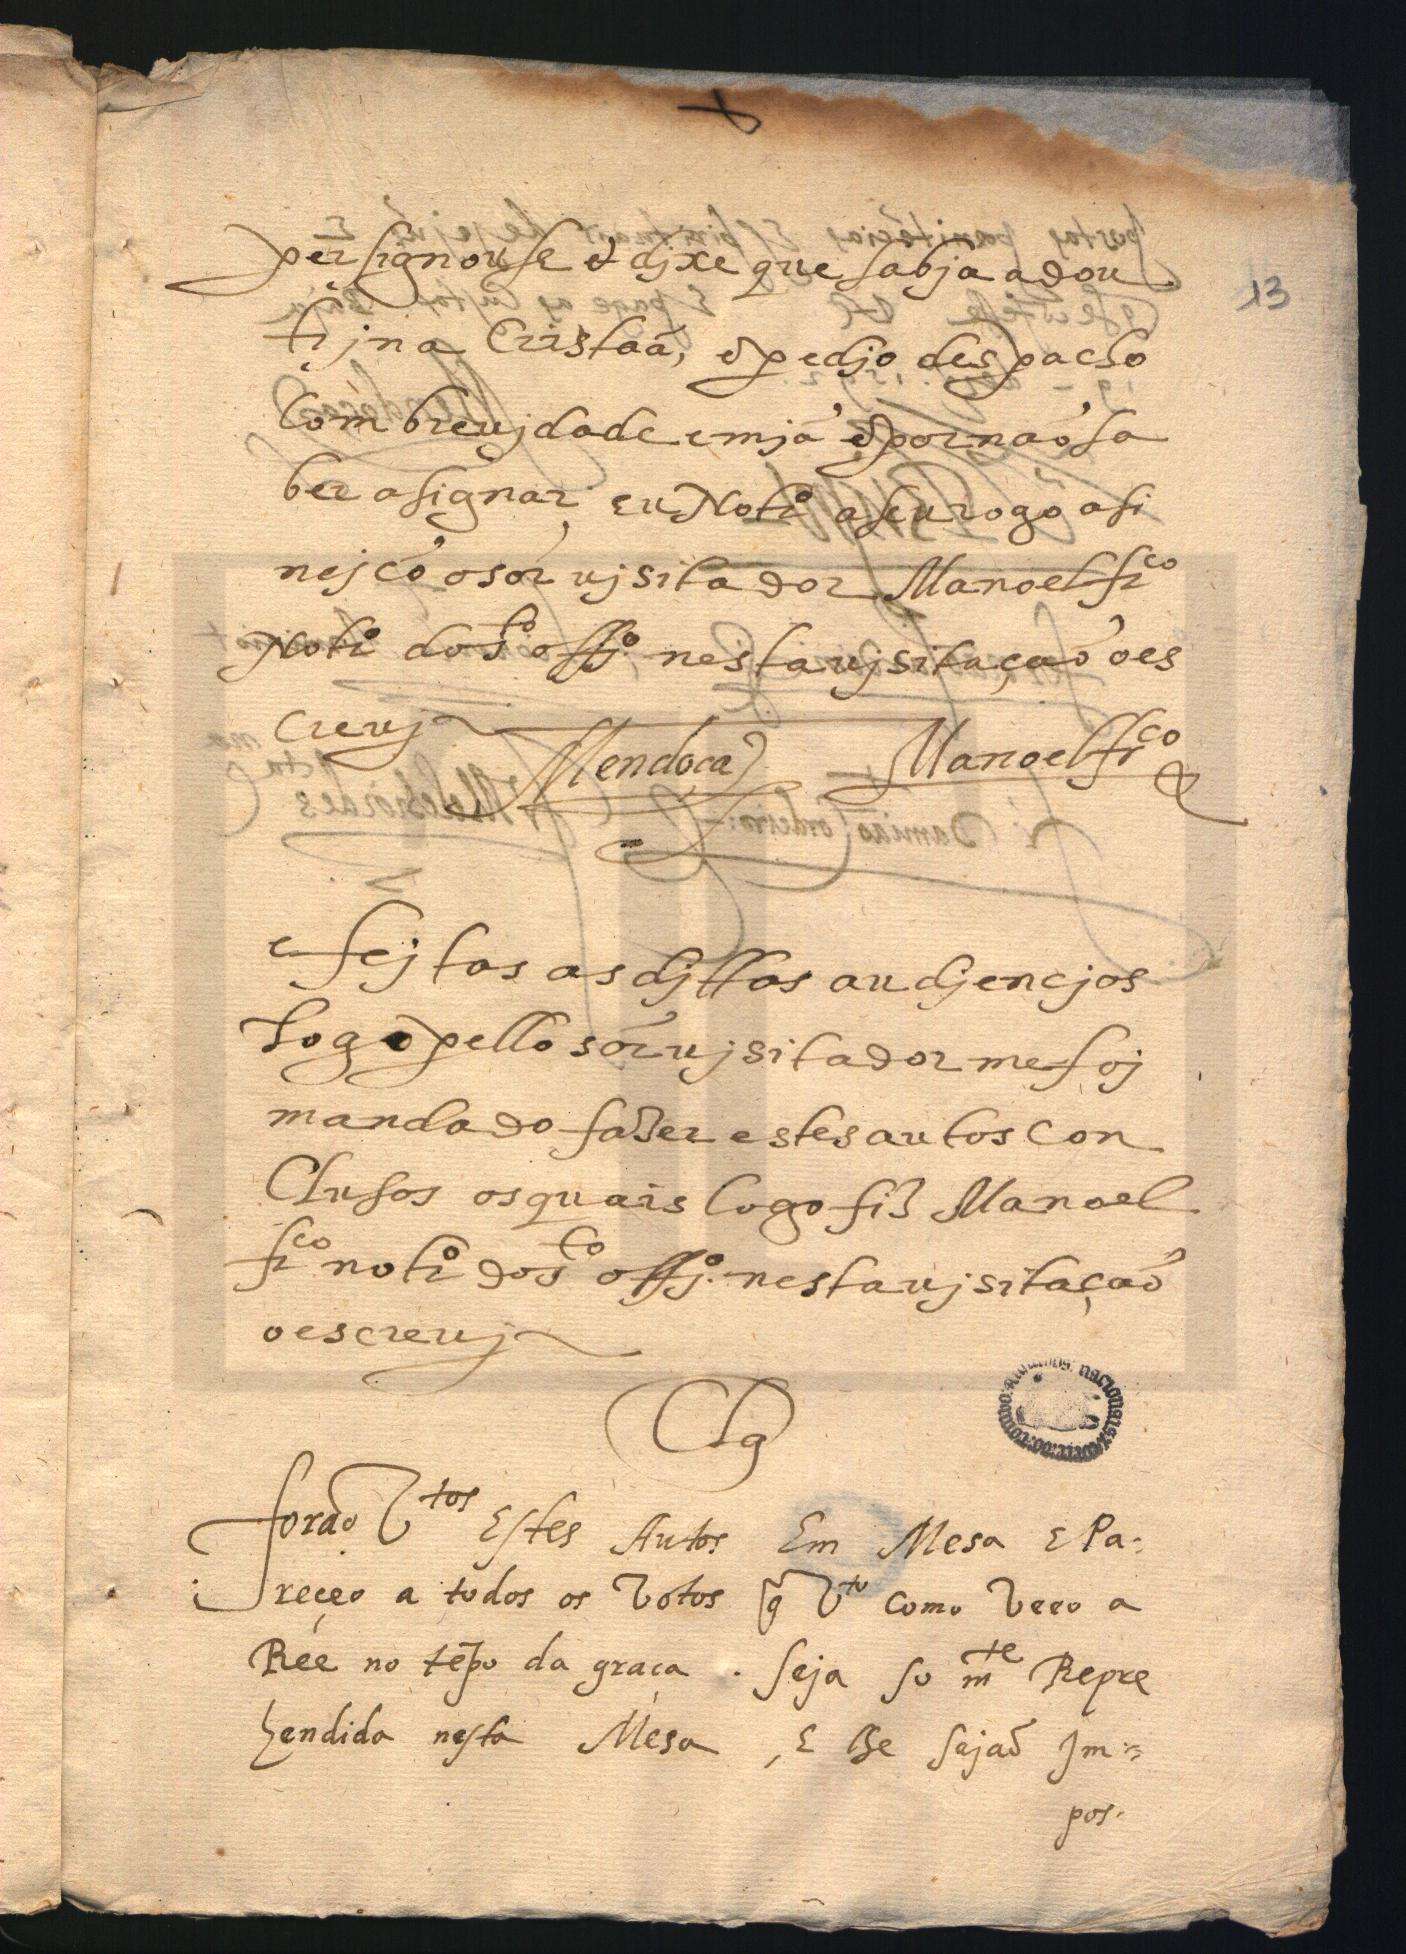 13
persignouse & djxe que sabja a dou
trjna Cristaã, & pedjo despacho
Com breujdade e mjã & por naõ sa
ber asignar eu Notro a seu rogo asi
nej cõ o sõr ujsitador Manoel frco
Notro do sto offjo nesta ujsitaçaõ o es
creuj
Mendoça Manoel frco
e fejtas as djttas audjencjas
logo pello sõr ujsitador me foj
mandado fazer estes autos Con
Clusos os quais logo fiz Manoel
frco notro do sto offjo nesta ujsitaçaõ
o escreuj
Clos
forão Vtos Estes Autos Em Mesa E Pa:
receo a todos os Votos q̃ Vto como Veeo a
Rée no tẽpo da graça . seja so mte Repre
hendida nesta Mesa , E lhe sejaõ Jm:
pos.